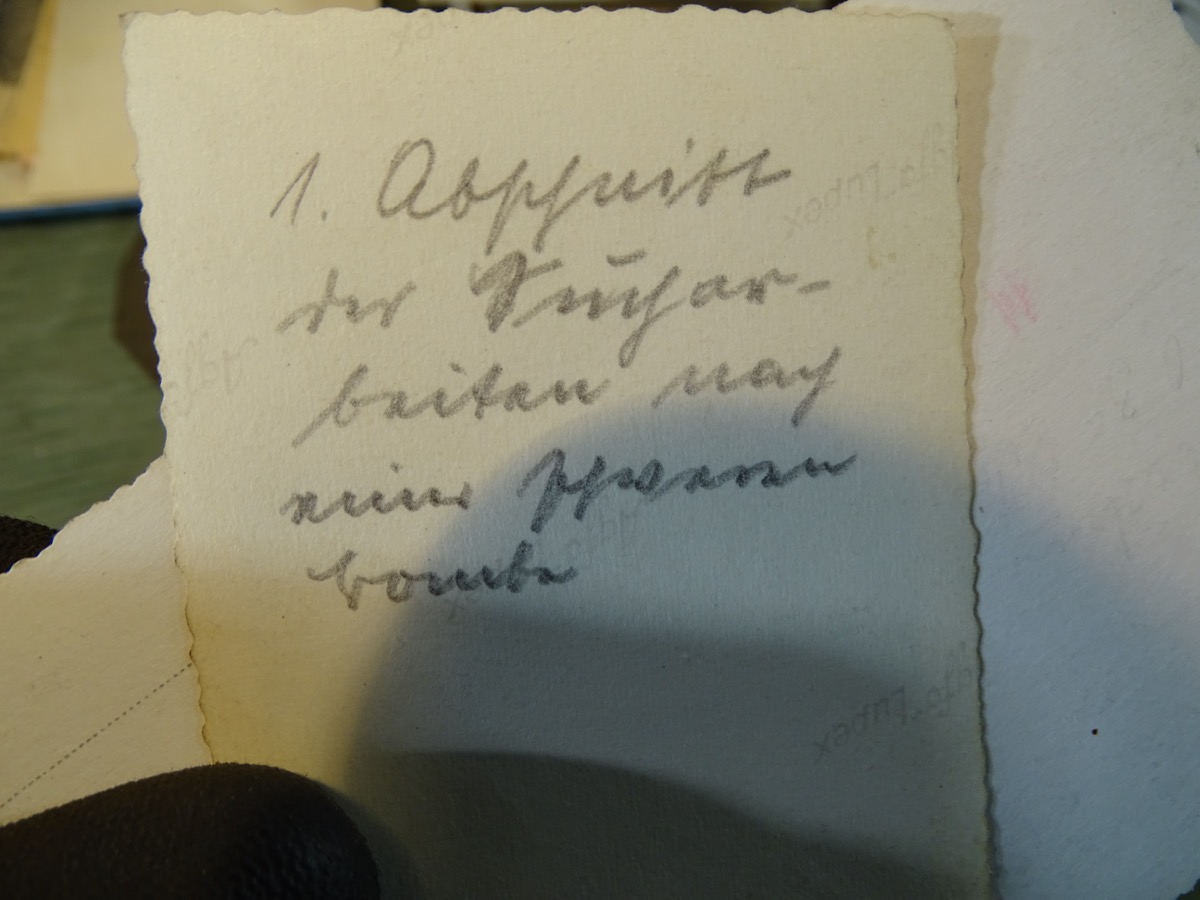 1. Abschnitt
der Suchar-
beiten nach
einer schweren
bombe
Agfa Lupex
Agfa Lupex